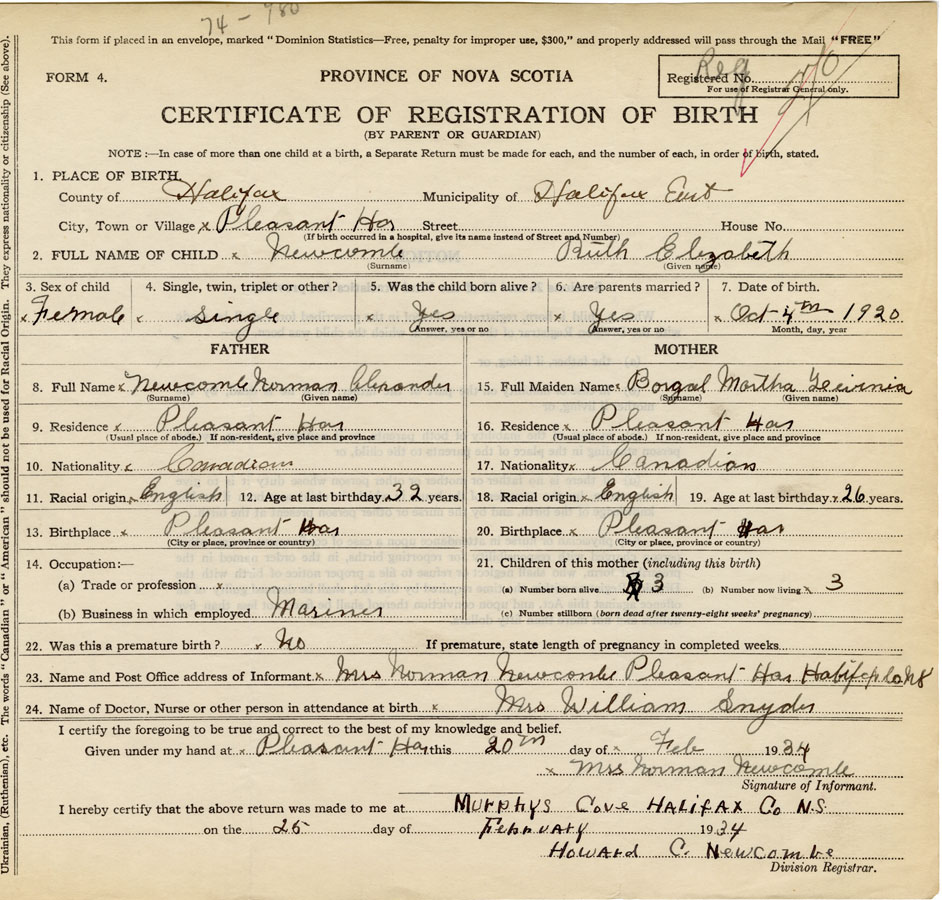 74 - 780
This form if placed in an envelope, marked "Dominion Statistics—Free, penalty for improper use, $300," and properly addressed will pass through the Mail "FREE"
FORM 4.
PROVINCE OF NOVA SCOTIA
Reg
Registered No.
For use of Registrar General only.
CERTIFICATE OF REGISTRATION OF BIRTH
(BY PARENT OR GUARDIAN)
NOTE :—In case of more than one child at a birth, a Separate Return must be made for each, and the number of each, in order of birth, stated.
1. PLACE OF BIRTH
County of Halifax Municipality of Halifax East
City, Town or Village x Pleasant Har Street House No.
(If birth occurred in a hospital, give its name instead of Street and Number)
2. FULL NAME OF CHILD x Newcombe Ruth Elizabeth
(Surname) (Given name)
3. Sex of child 4. Single, twin, triplet or other? 5. Was the child born alive? 6. Are parents married? 7. Date of birth.
x Female x single x Yes x Yes x Oct 4th 1920
Answer, yes or no Answer, yes or no Month, day, year
FATHER
8. Full Name x Newcombe Norman Alexander
(Surname) (Given name)
9. Residence x Pleasant Har
(Usual place of abode.) If non-resident, give place and province
10. Nationality x Canadian
11. Racial origin x English 12. Age at last birthday x 32 years.
13. Birthplace x Pleasant Har
(City or place, province or country)
14. Occupation:—
(a) Trade or profession x
(b) Business in which employed Mariner
MOTHER
15. Full Maiden Name x Borgal Martha Levinia
(Surname) (Given name)
16. Residence x Pleasant Har
(Usual place of abode.) If non-resident, give place and province
17. Nationality x Canadian
18. Racial origin x English 19. Age at last birthday x 26 years.
20. Birthplace x Pleasant Har
(City or place, province or country)
21. Children of this mother (including this birth)
(a) Number born alive 3 (b) Number now living x 3
(c) Number stillborn (born dead after twenty-eight weeks' pregnancy)
22. Was this a premature birth? x No If premature, state length of pregnancy in completed weeks
23. Name and Post Office address of Informant x Mrs Norman Newcombe Pleasant Har Halifax Co NS
24. Name of Doctor, Nurse or other person in attendance at birth x Mrs William Snyder
I certify the foregoing to be true and correct to the best of my knowledge and belief.
Given under my hand at x Pleasant Har this 20th day of x Feb 1934
x Mrs Norman Newcombe
Signature of Informant.
I hereby certify that the above return was made to me at Murphys Cove Halifax Co N.S
on the 25 day of February 1934
Howard C. Newcombe
Division Registrar.
Ukrainian, (Ruthenian), etc. The words "Canadian" or "American" should not be used for Racial Origin. They express nationality or citizenship (See above).